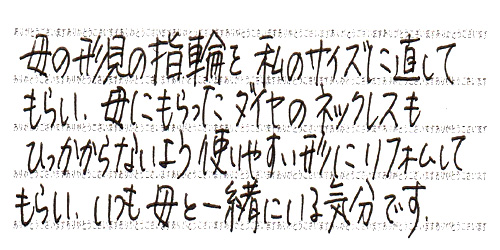 母の形見の指輪を 私のサイズに直して
もらい、母にもらったダイヤのネックレスも
ひっかからないよう使いやすい形にリフォームして
もらい、いつも母と一緒にいる気分です。